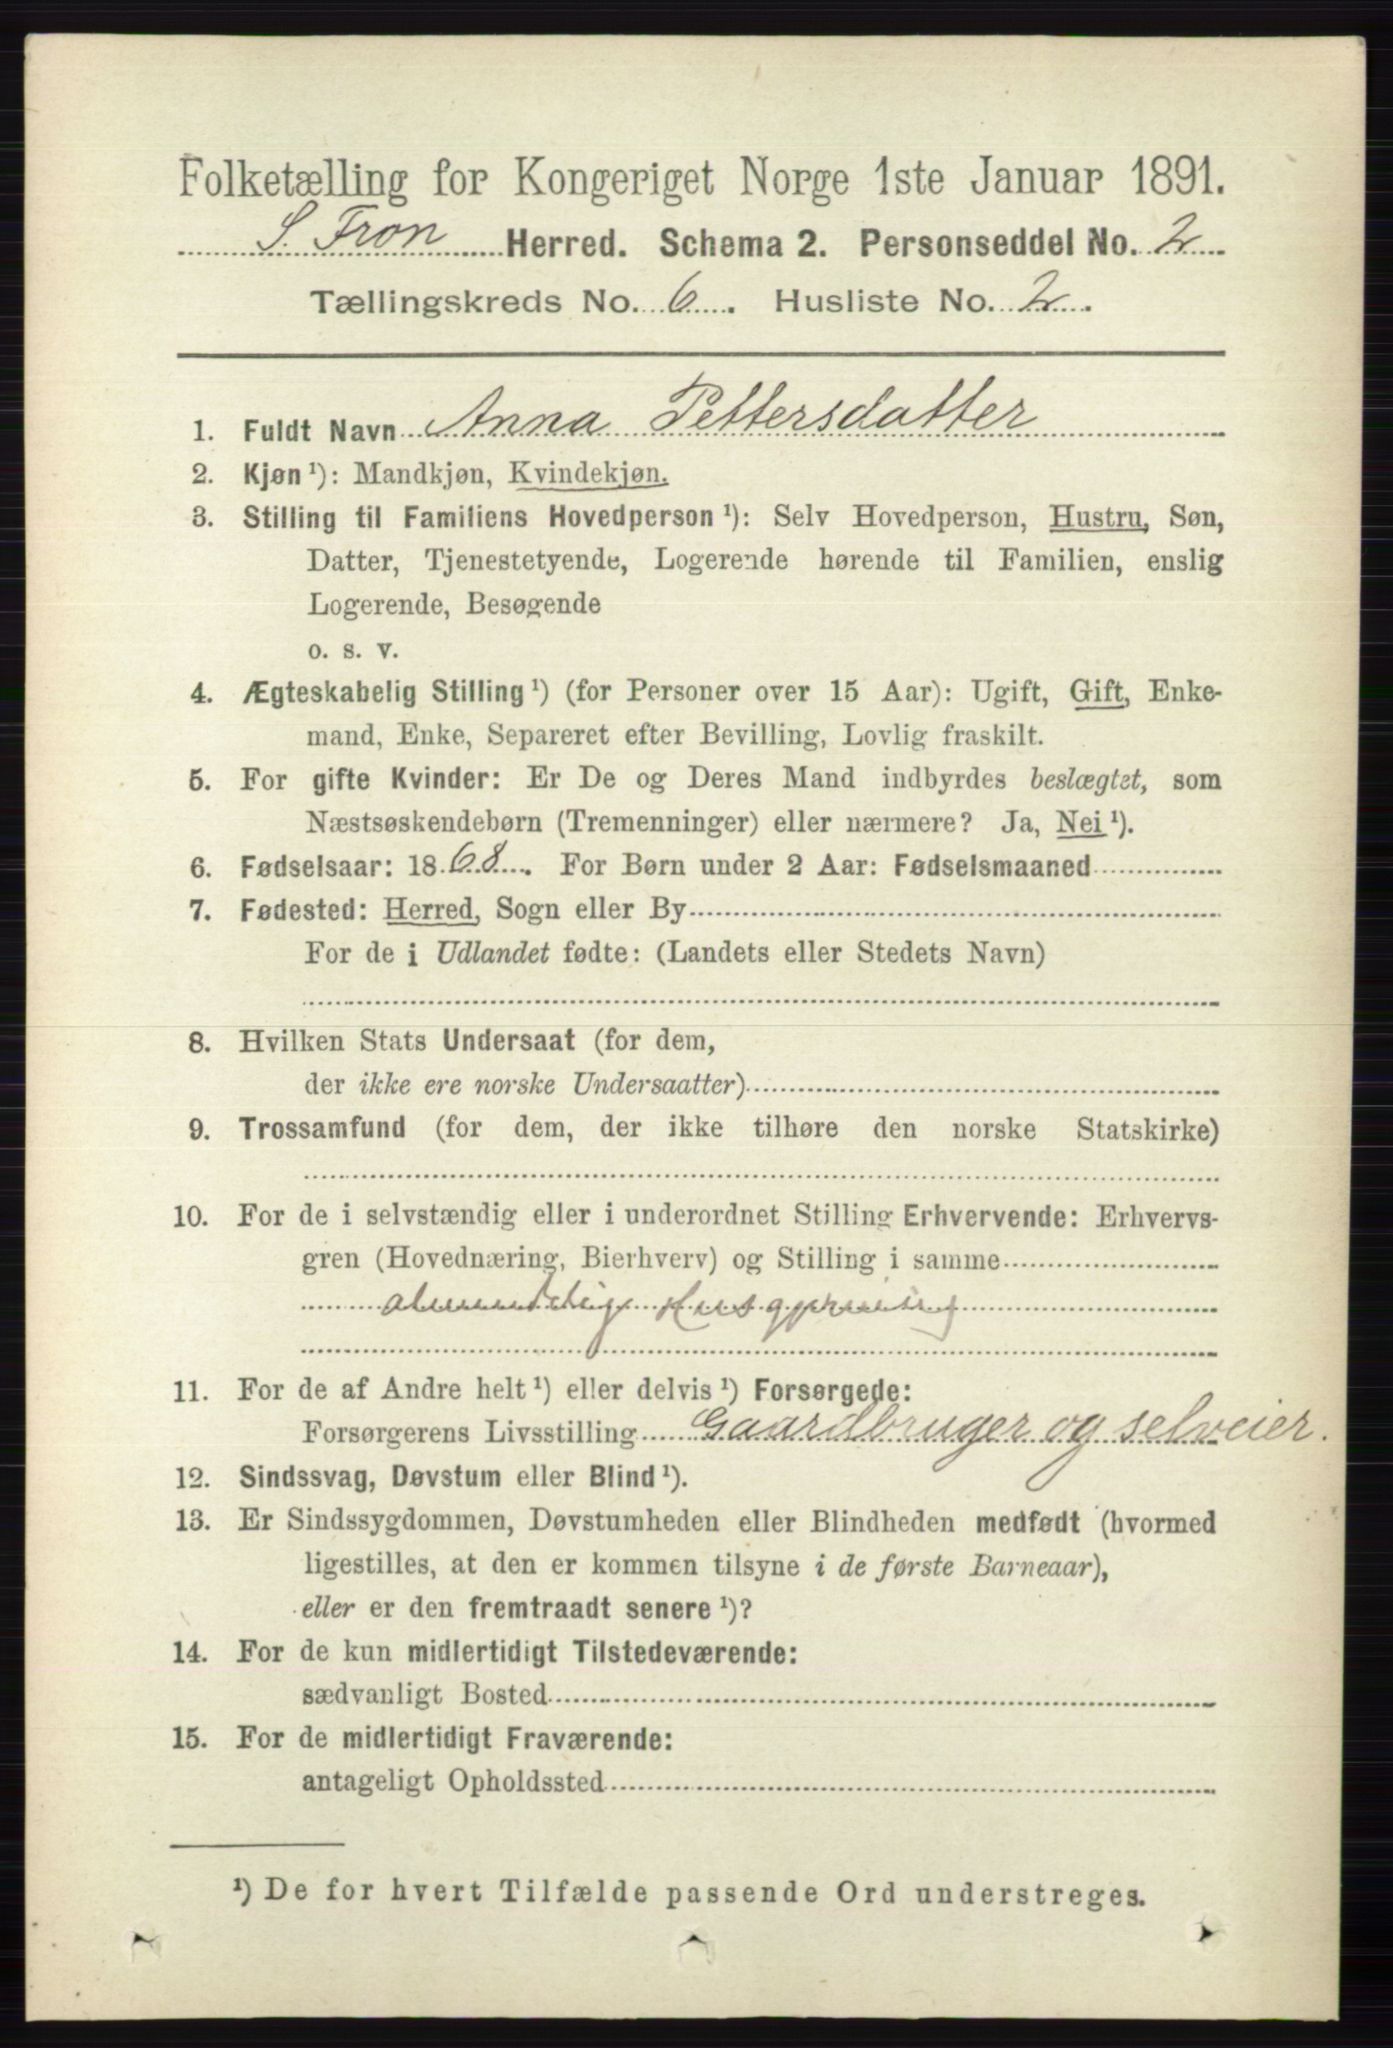 Folketælling for Kongeriget Norge 1ste Januar 1891.
S. Fron Herred. Schema 2. Personseddel No. 2
Tællingskreds No. 6. Husliste No. 2.
1. Fuldt Navn Anna Pettersdatter
2. Kjøn¹): Mandkjøn, Kvindekjøn.
3. Stilling til Familiens Hovedperson¹): Selv Hovedperson, Hustru, Søn,
Datter, Tjenestetyende, Logerende hørende til Familien, enslig
Logerende, Besøgende
o. s. v.
4. Ægteskabelig Stilling¹) (for Personer over 15 Aar): Ugift, Gift, Enke-
mand, Enke, Separeret efter Bevilling, Lovlig fraskilt.
5. For gifte Kvinder: Er De og Deres Mand indbyrdes beslægtet, som
Næstsøskendebørn (Tremenninger) eller nærmere? Ja, Nei¹).
6. Fødselsaar: 1868. For Børn under 2 Aar: Fødselsmaaned
7. Fødested: Herred, Sogn eller By
For de i Udlandet fødte: (Landets eller Stedets Navn)
8. Hvilken Stats Undersaat (for dem,
der ikke ere norske Undersaatter)
9. Trossamfund (for dem, der ikke tilhøre den norske Statskirke)
10. For de i selvstændig eller i underordnet Stilling Erhvervende: Erhvervs-
gren (Hovednæring, Bierhverv) og Stilling i samme
almindelig Husgjerning
11. For de af Andre helt¹) eller delvis¹) Forsørgede:
Forsørgerens Livsstilling Gaardbruger og selveier.
12. Sindssvag, Døvstum eller Blind¹).
13. Er Sindssygdommen, Døvstumheden eller Blindheden medfødt (hvormed
ligestilles, at den er kommen tilsyne i de første Barneaar),
eller er den fremtraadt senere¹)?
14. For de kun midlertidigt Tilstedeværende:
sædvanligt Bosted
15. For de midlertidigt Fraværende:
antageligt Opholdssted
¹) De for hvert Tilfælde passende Ord understreges.